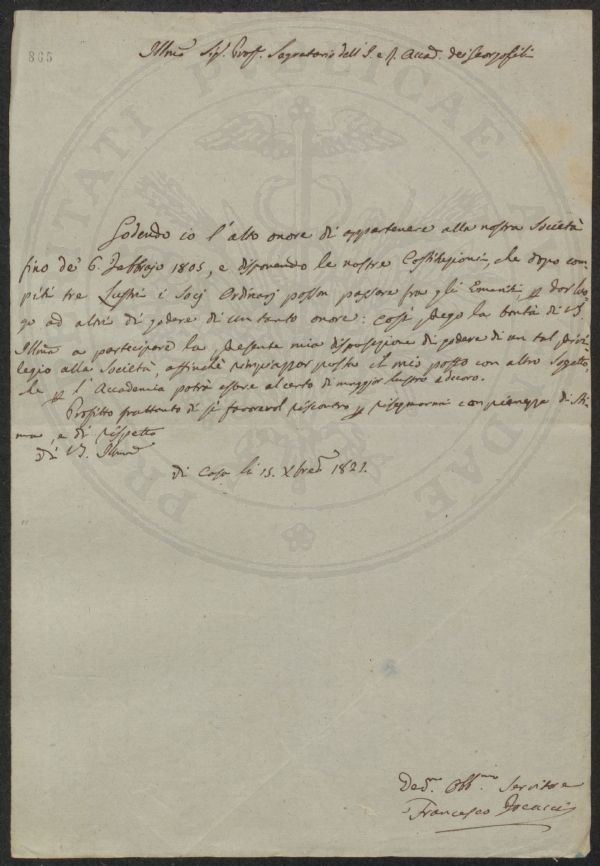 865
Illmo Sigr. Proff. Segretario dell' I. e R. Accad. dei Georgofili
PROSPERITATI PUBLICAE AUGENDAE
Godendo io l'alto onore di appartenere alla nostra Società
fino de' 6. Febbrajo 1805, e disponendo le nostre Costituzioni, che dopo com-
piti tre Lustri i Socj Ordinarj posson passare fra gli Emeriti per dar luo-
go ad altri di godere di un tanto onore: Così prego la bontà di VS.
Illma a partecipare la presente mia disposizione di godere di un tal privi-
legio alla Società, affinchè rimpiazzar possa il mio posto con altro Sogetto,
che per l'Accademia potrà essere al certo di maggior lustro, e decoro.
Profitto frattanto di sì favorevol riscontro per rassegnarmi con pienezza di sti-
ma, e di rispetto
Di VS. Illma
Di Casa li 15. Xbre 1821.
Devmo Obbmo Servitore
Francesco